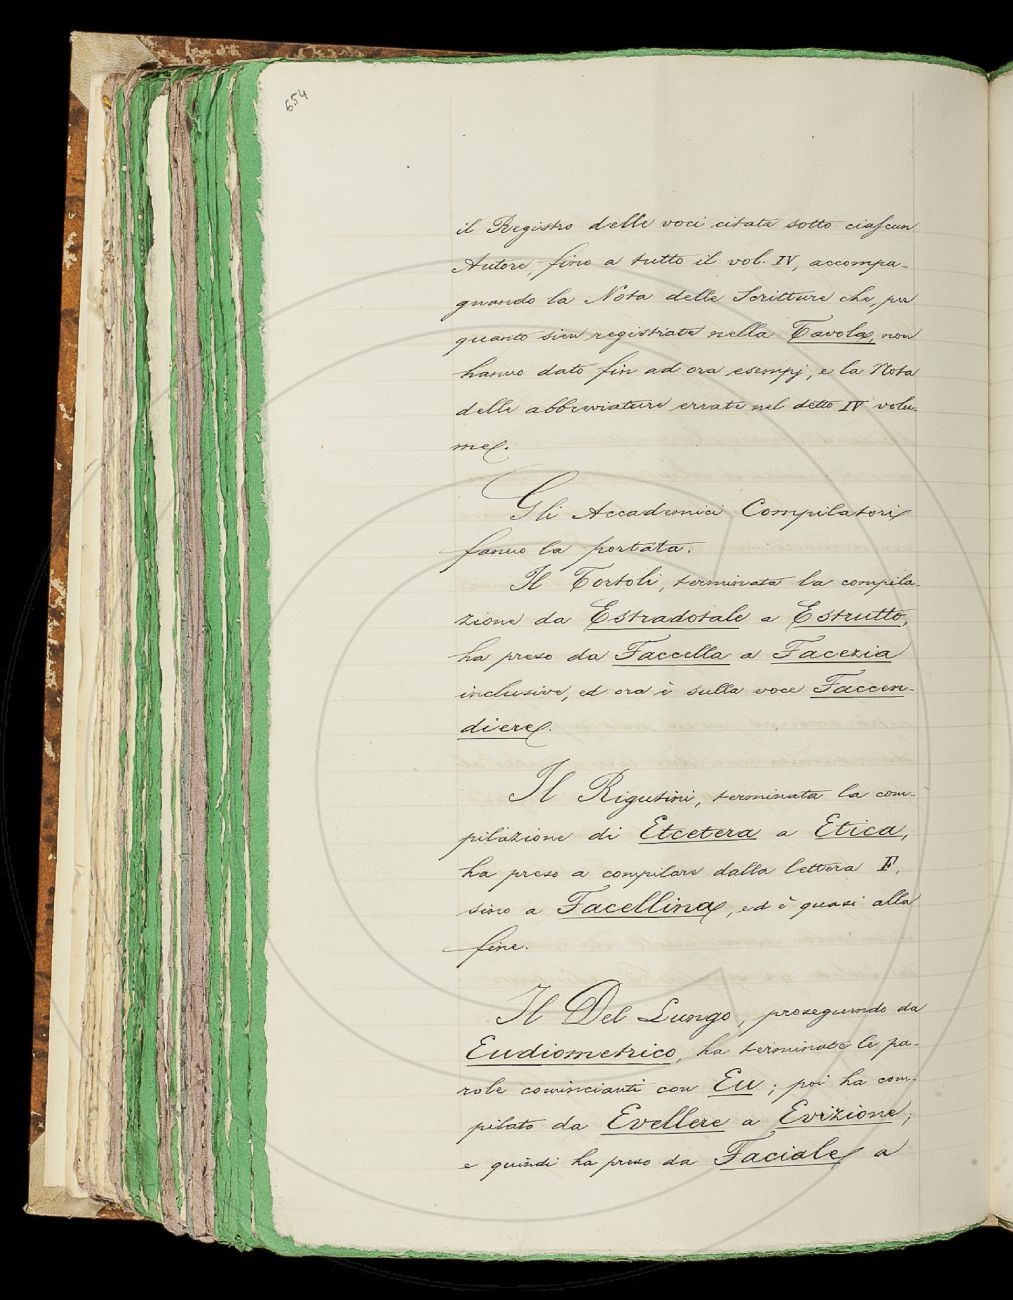 654
il Registro delle voci citate sotto ciascun
Autore, fino a tutto il vol. IV, accompa-
gnando la Nota delle Scritture che, per
quanto sien registrate nella Tavola, non
hanno dato fin ad ora esempj, e la Nota
delle abbreviature errate nel detto IV volu-
me.
Gli Accademici Compilatori
fanno la portata.
Il Tortoli, terminata la compila-
zione da Estradotale a Estrutto,
ha preso da Faccella a Facezia
inclusive, ed ora è sulla voce Faccen-
diere.
Il Rigutini, terminata la com-
pilazione di Etcetera a Etica,
ha preso a compilare dalla lettera F,
sino a Facellina, ed è quasi alla
fine.
Il Del Lungo, proseguendo da
Eudiometrico, ha terminate le pa-
role comincianti con Eu; poi ha com-
pilato da Evellere a Evizione;
e quindi ha preso da Faciale a